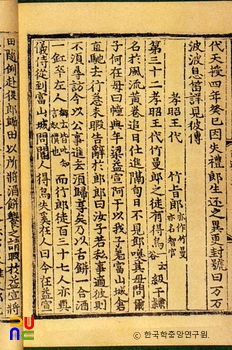 代天授四年癸巳因失禮郎生還之異更封號曰万万
波波息笛詳見彼傳
孝昭王代 竹旨郎 亦作竹曼亦名智官
第三十二孝昭王代竹曼郎之徒有得烏級干隸
名於風流黃卷追日仕進隔旬日不見郎喚其母問爾
子何在母曰幢典牟梁益宣阿干以我子差富山城倉
直馳去行急未暇告辭於郎郎曰汝子若私事適彼則
不須尋訪今以公事進去須歸享矣乃以舌餅一合酒
一缸卒左人鄉云皆叱知言奴僕也而行郎徒百三十七人亦具
儀侍從到富山城問閽人得烏失奚在人曰今在益宣
田隨例赴役郎歸田以所將酒餅饗之請暇於益宣將
한국학중앙연구원